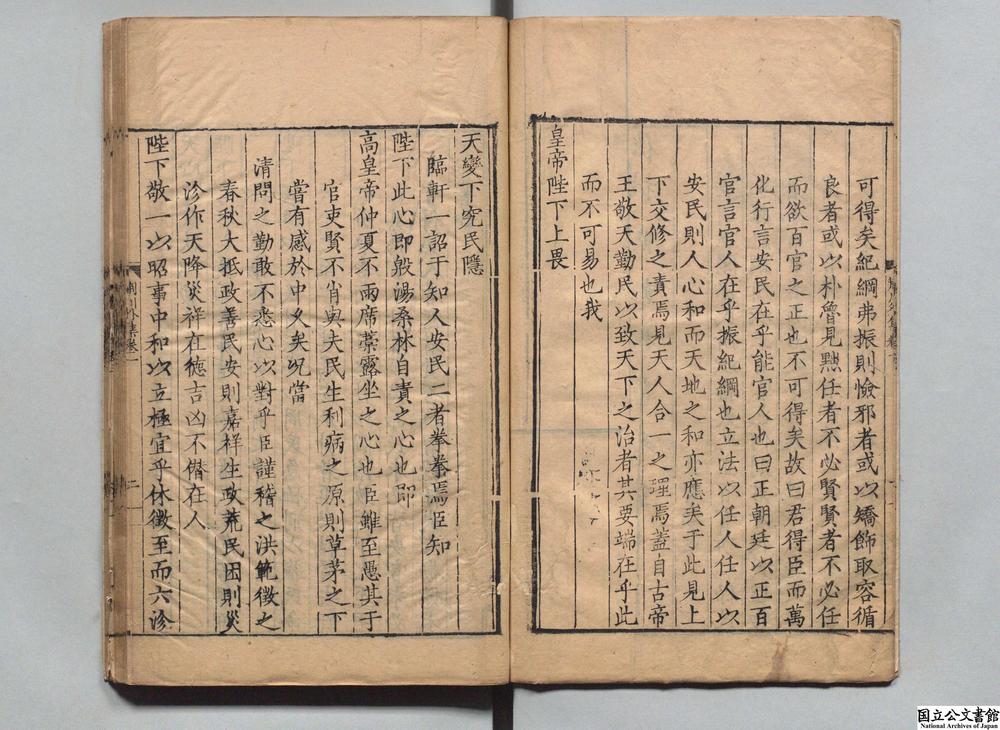 可得矣紀綱弗振則憸邪者或以矯飾取容循
良者或以朴魯見黜任者不必賢賢者不必任
而欲百官之正也不可得矣故曰君得臣而萬
化行言安民在乎能官人也曰正朝廷以正百
官言官人在乎振紀綱也立法以任人任人以
安民則人心和而天地之和亦應矣于此見上
下交修之責焉見天人合一之理焉蓋自古帝
王敬天勤民以致天下之治者其要端在乎此
而不可易也我
皇帝陛下上畏
天變下究民隱
臨軒一詔于知人安民二者拳拳焉臣知
陛下此心即殷湯桑林自責之心也即
高皇帝仲夏不雨席藁露坐之心也臣雖至愚其于
官吏賢不肖與夫民生利病之原則草茅之下
嘗有感於中久矣况當
清問之勤敢不悉心以對乎臣謹稽之洪範徵之
春秋大抵政善民安則嘉祥生政荒民困則災
沴作天降災祥在德吉凶不僭在人
陛下敬一以昭事中和以立極宜乎休徵至而六沴
荊川外集卷一
二
国立公文書館
National Archives of Japan